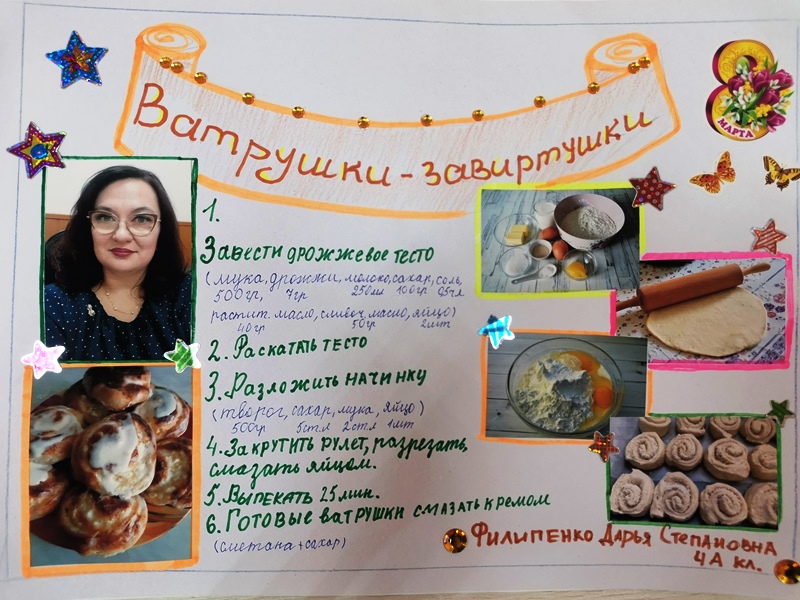 Ватрушки-завиртушки
8
МАРТА
1.
Завести дрожжевое тесто
(мука, дрожжи, молоко, сахар, соль,
500гр, 7гр 250мл 100гр 0,5ч.л
растит. масло, сливоч. масло, яйцо)
40гр 50гр 2шт
2. Раскатать тесто
3. Разложить начинку
(творог, сахар, мука, яйцо)
500гр 5ст.л 2ст.л 1шт
4. Закрутить рулет, разрезать,
смазать яйцом.
5. Выпекать 25 мин.
6. Готовые ватрушки смазать кремом
(сметана + сахар)
Филипенко Дарья Степановна
4А кл.